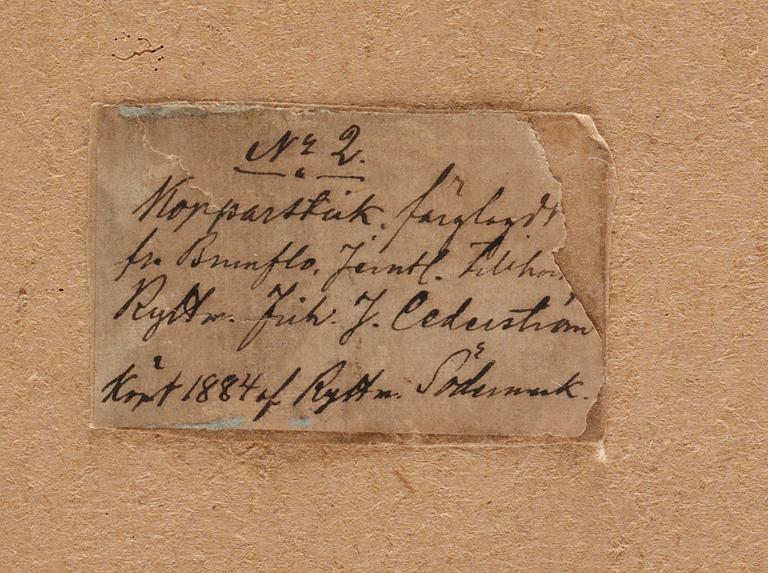 No 2.
Kopparstick. färglagdt
fr. Brunflo. Jemtl. Tillhör
Ryttm. Frih. J. Cederström
Köpt 1884 af Ryttm. Södermark.